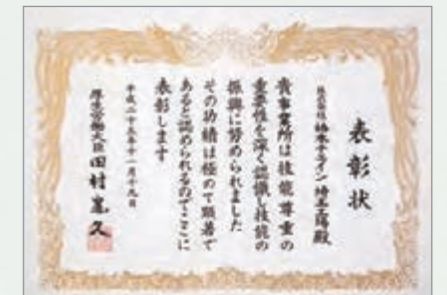 表彰状
株式会社椿本チエイン埼玉工場殿
貴事業所は技能尊重の
重要性を深く認識し技能の
振興に努められました
その功績は極めて顕著で
あると認められるのでここに
表彰します
平成二十五年十一月十九日
厚生労働大臣田村憲久